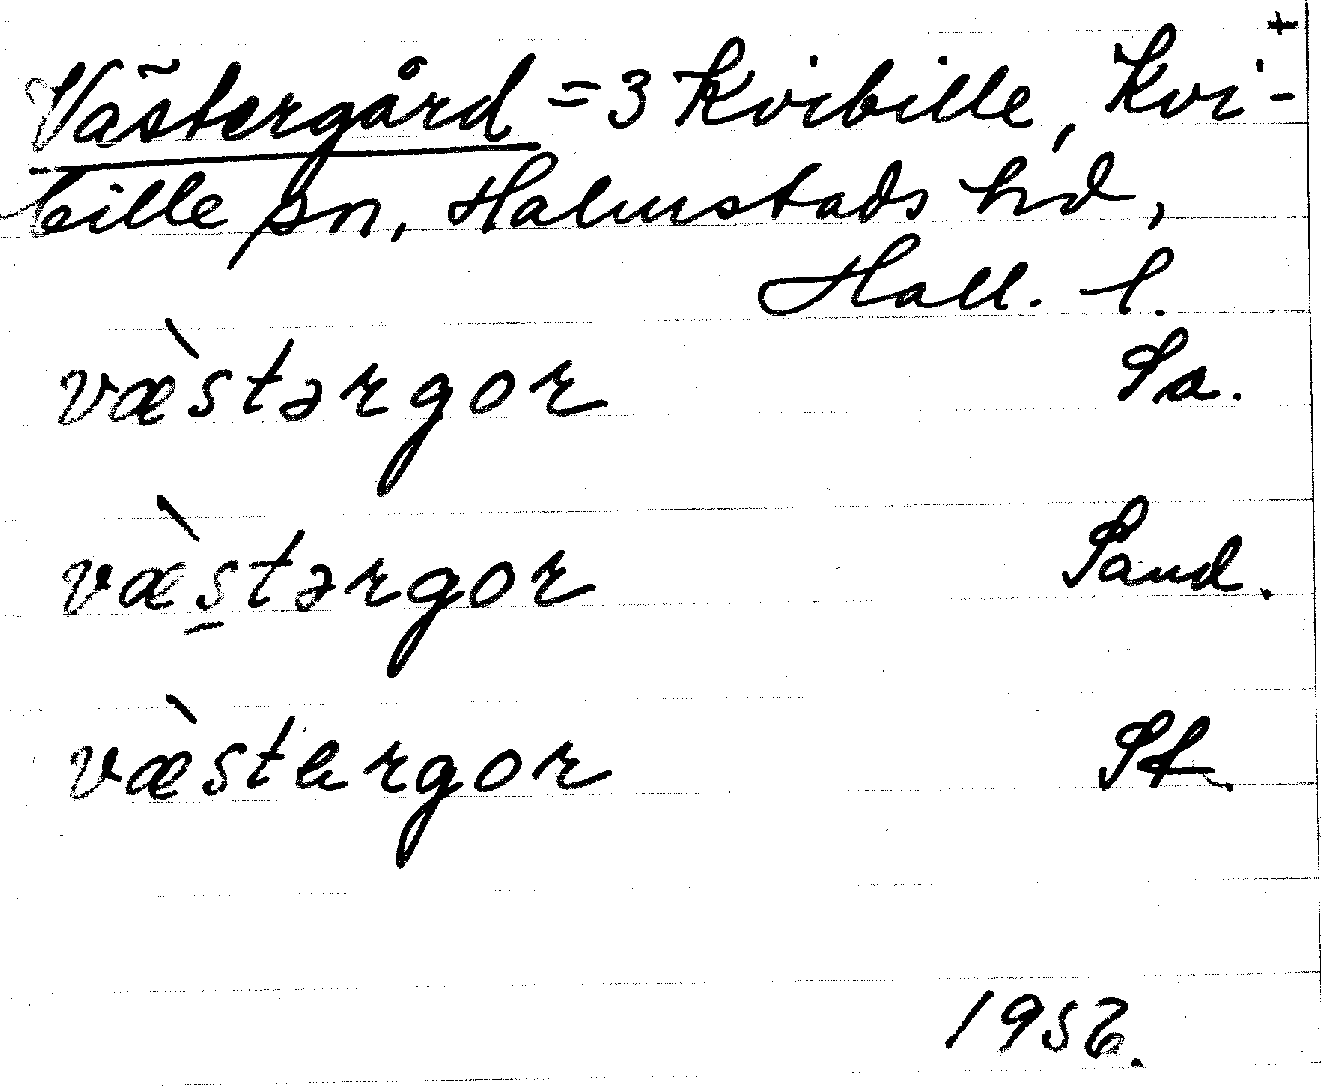 +
Västergård = 3 Kvibille, Kvi-
bille sn, Halmstads hd,
Hall. l.
væ̀stərgor Sa.
væ̀s̱tərgor Sand.
væ̀stergor
1956.